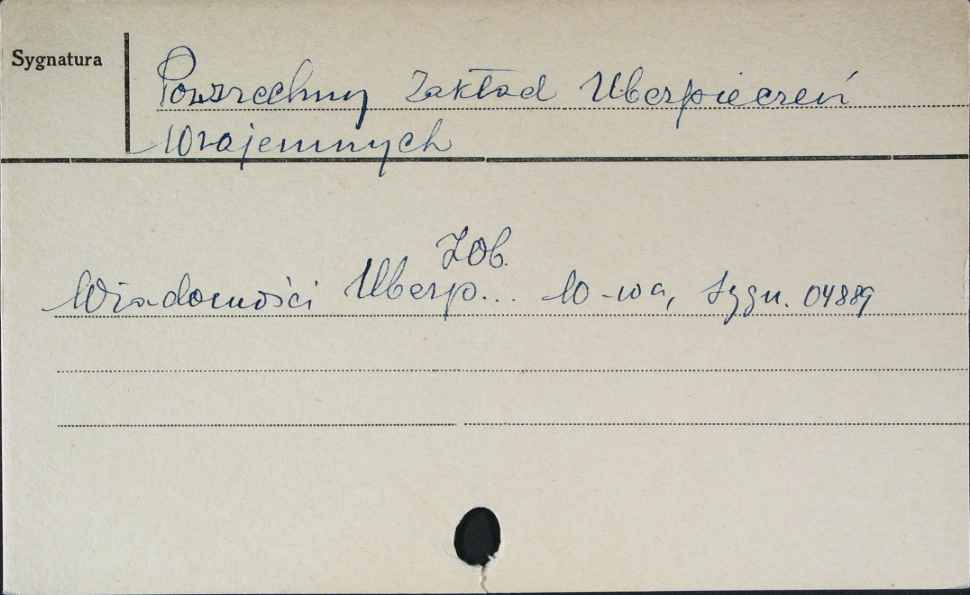 Sygnatura
Powszechny Zakład Ubezpieczeń
Wzajemnych
Zob.
Wiadomości Ubezp... W-wa, Sygn. 04889